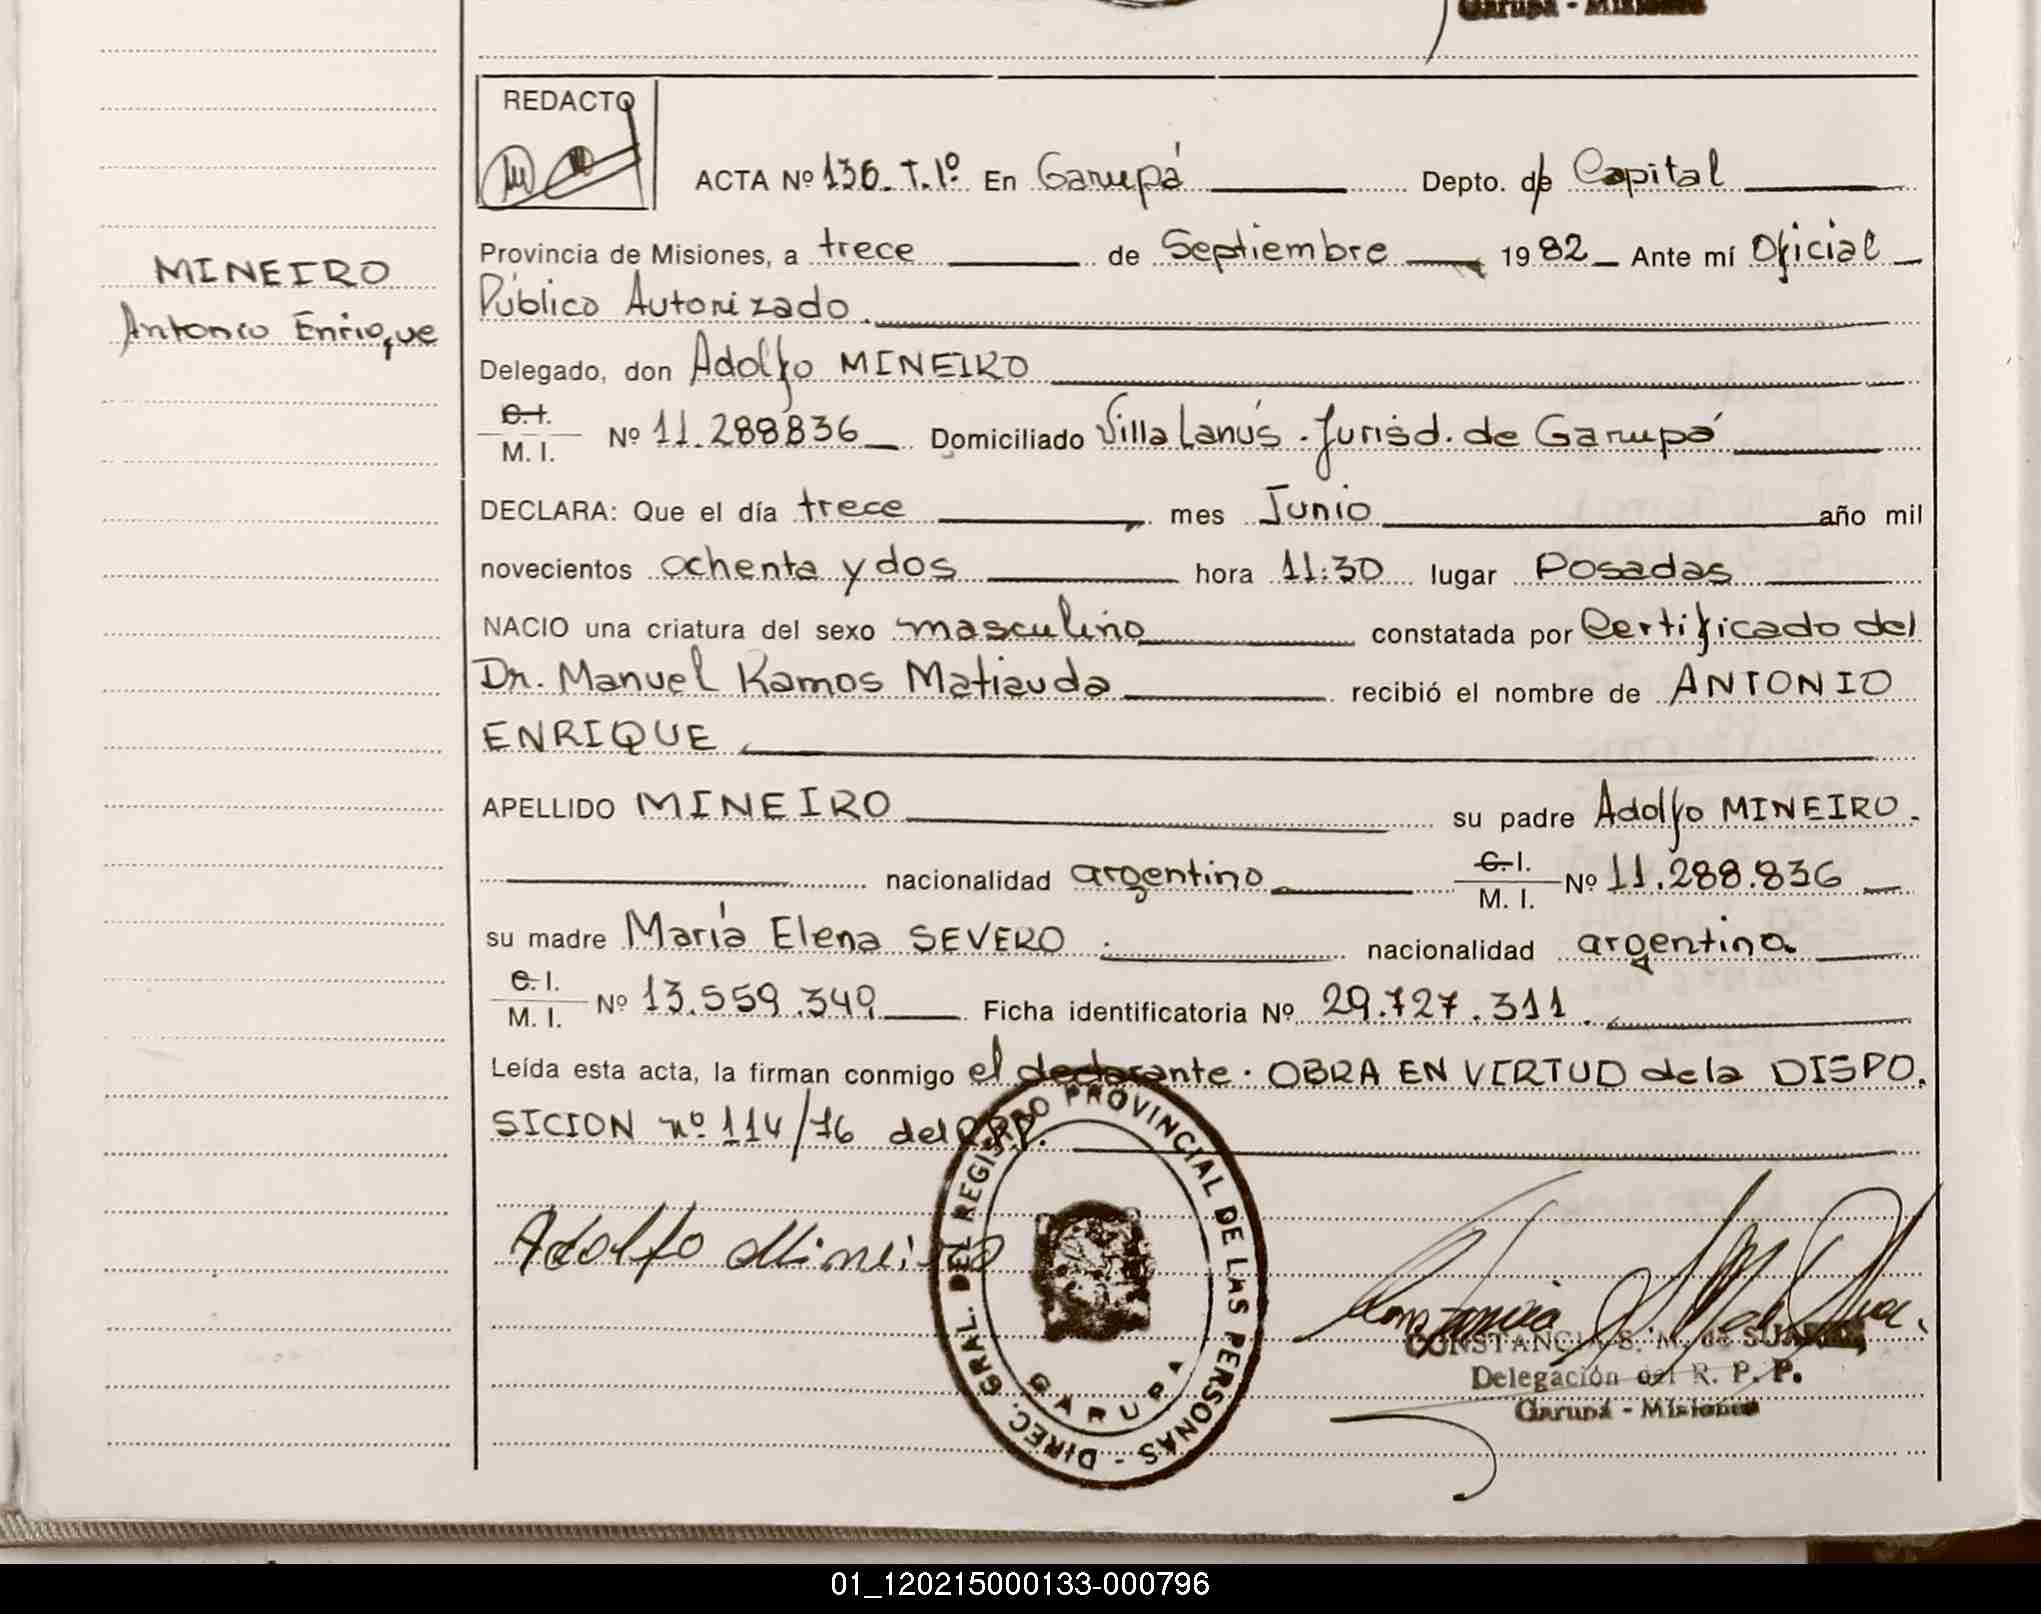 Garupá - Misiones
REDACTO
ACTA Nº 136. T. 1º. En Garupá Depto. de Capital
MINEIRO
Antonio Enrique
Provincia de Misiones, a trece de Septiembre 1982 Ante mí Oficial
Público Autorizado.
Delegado, don Adolfo MINEIRO
C.I.
M. I. Nº 11.288836 Domiciliado Villa Lanús. Jurisd. de Garupá
DECLARA: Que el día trece mes Junio año mil
novecientos ochenta y dos hora 11:30 lugar Posadas
NACIO una criatura del sexo masculino constatada por Certificado del
Dr. Manuel Ramos Matiauda recibió el nombre de ANTONIO
ENRIQUE
APELLIDO MINEIRO su padre Adolfo MINEIRO.
nacionalidad argentino C.I. M. I. Nº 11.288.836
su madre María Elena SEVERO nacionalidad argentina
C.I.
M. I. Nº 13.559.349 Ficha identificatoria Nº 29.727.311.
Leída esta acta, la firman conmigo el declarante. OBRA EN VIRTUD de la DISPO.
SICION nº 114/76 del R.P.P.
Adolfo Mineiro
DIREC. GRAL. DEL REGISTRO PROVINCIAL DE LAS PERSONAS -
GARUPA
CONSTANCIA S. M. de SUAREZ
Delegación del R. P. P.
Garupá - Misiones
01_120215000133-000796